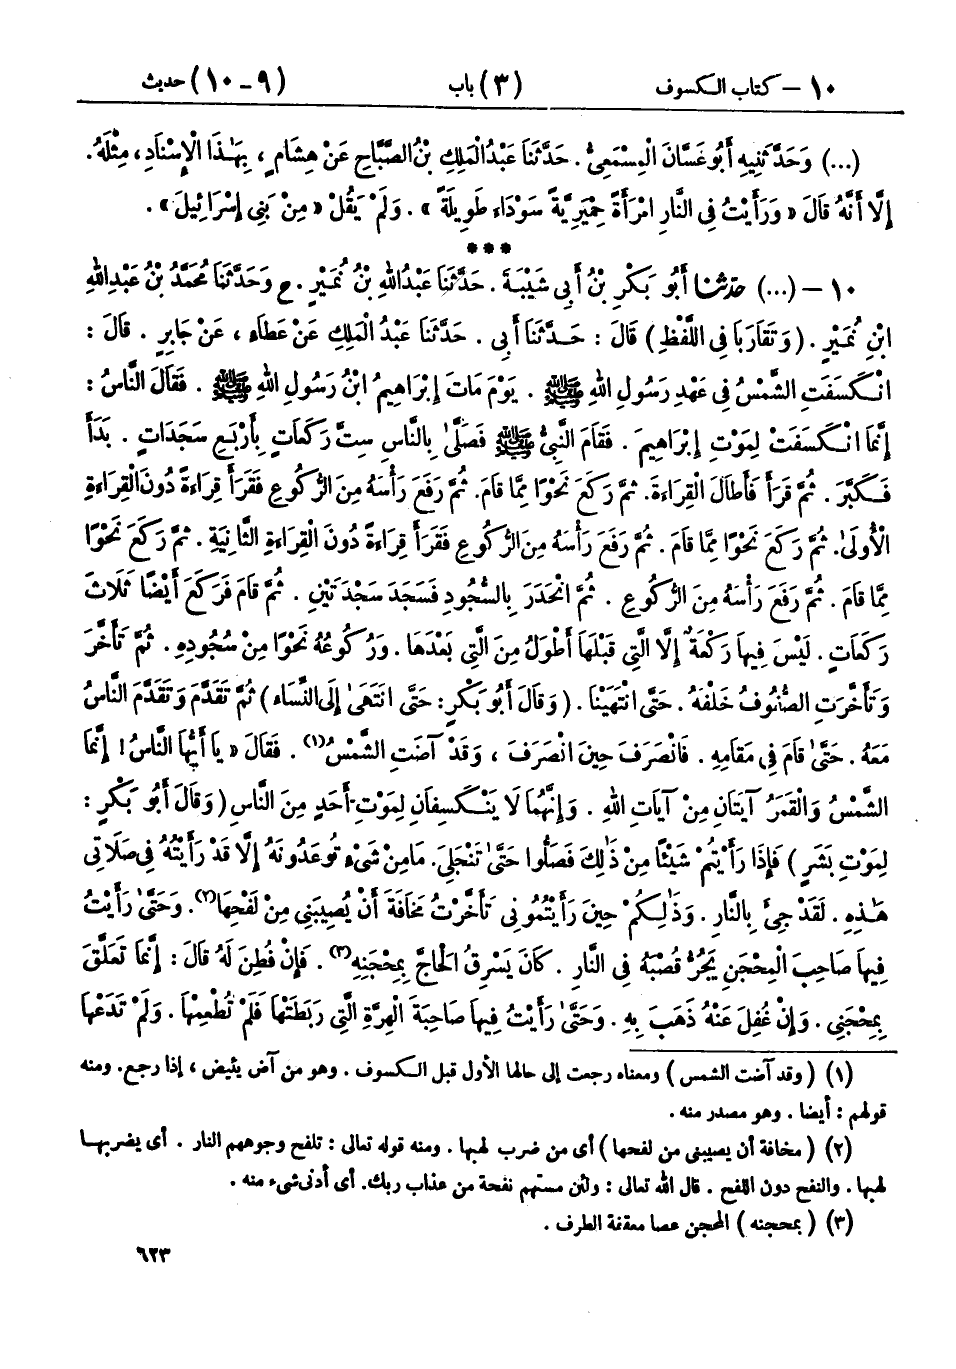 ١٠ – كتاب الكسوف (٣) باب (٩ - ١٠) حديث
(...) وَحَدَّثَنِيهِ أَبُو غَسَّانَ الْمِسْمَعِيُّ . حَدَّثَنَا عَبْدُ الْمَلِكِ بْنُ الصَّبَّاحِ عَنْ هِشَامٍ ، بِهَٰذَا الْإِسْنَادِ ، مِثْلَهُ .
إِلَّا أَنَّهُ قَالَ « وَرَأَيْتُ فِي النَّارِ امْرَأَةً حِمْيَرِيَّةً سَوْدَاءَ طَوِيلَةً » . وَلَمْ يَقُلْ « مِنْ بَنِي إِسْرَائِيلَ » .
***
١٠ – (...) حدثنا أَبُو بَكْرِ بْنُ أَبِي شَيْبَةَ . حَدَّثَنَا عَبْدُ اللهِ بْنُ نُمَيْرٍ . ح وَحَدَّثَنَا مُحَمَّدُ بْنُ عَبْدِ اللهِ
ابْنِ نُمَيْرٍ . ( وَتَقَارَبَا فِي اللَّفْظِ ) قَالَ : حَدَّثَنَا أَبِي . حَدَّثَنَا عَبْدُ الْمَلِكِ عَنْ عَطَاءٍ ، عَنْ جَابِرٍ . قَالَ :
انْكَسَفَتِ الشَّمْسُ فِي عَهْدِ رَسُولِ اللهِ ﷺ . يَوْمَ مَاتَ إِبْرَاهِيمُ ابْنُ رَسُولِ اللهِ ﷺ . فَقَالَ النَّاسُ :
إِنَّمَا انْكَسَفَتْ لِمَوْتِ إِبْرَاهِيمَ . فَقَامَ النَّبِيُّ ﷺ فَصَلَّىٰ بِالنَّاسِ سِتَّ رَكَعَاتٍ بِأَرْبَعِ سَجَدَاتٍ . بَدَأَ
فَكَبَّرَ . ثُمَّ قَرَأَ فَأَطَالَ الْقِرَاءَةَ . ثُمَّ رَكَعَ نَحْوًا مِمَّا قَامَ . ثُمَّ رَفَعَ رَأْسَهُ مِنَ الرُّكُوعِ فَقَرَأَ قِرَاءَةً دُونَ الْقِرَاءَةِ
الْأُولَىٰ . ثُمَّ رَكَعَ نَحْوًا مِمَّا قَامَ . ثُمَّ رَفَعَ رَأْسَهُ مِنَ الرُّكُوعِ فَقَرَأَ قِرَاءَةً دُونَ الْقِرَاءَةِ الثَّانِيَةِ . ثُمَّ رَكَعَ نَحْوًا
مِمَّا قَامَ . ثُمَّ رَفَعَ رَأْسَهُ مِنَ الرُّكُوعِ . ثُمَّ انْحَدَرَ بِالسُّجُودِ فَسَجَدَ سَجْدَتَيْنِ . ثُمَّ قَامَ فَرَكَعَ أَيْضًا ثَلَاثَ
رَكَعَاتٍ . لَيْسَ فِيهَا رَكْعَةٌ إِلَّا الَّتِي قَبْلَهَا أَطْوَلُ مِنَ الَّتِي بَعْدَهَا . وَرُكُوعُهُ نَحْوًا مِنْ سُجُودِهِ . ثُمَّ تَأَخَّرَ
وَتَأَخَّرَتِ الصُّفُوفُ خَلْفَهُ . حَتَّى انْتَهَيْنَا . ( وَقَالَ أَبُو بَكْرٍ : حَتَّى انْتَهَىٰ إِلَى النِّسَاءِ ) ثُمَّ تَقَدَّمَ وَتَقَدَّمَ النَّاسُ
مَعَهُ . حَتَّىٰ قَامَ فِي مَقَامِهِ . فَانْصَرَفَ حِينَ انْصَرَفَ ، وَقَدْ آضَتِ الشَّمْسُ(١) . فَقَالَ « يَا أَيُّهَا النَّاسُ ! إِنَّمَا
الشَّمْسُ وَالْقَمَرُ آيَتَانِ مِنْ آيَاتِ اللهِ . وَإِنَّهُمَا لَا يَنْكَسِفَانِ لِمَوْتِ أَحَدٍ مِنَ النَّاسِ ( وَقَالَ أَبُو بَكْرٍ :
لِمَوْتِ بَشَرٍ ) فَإِذَا رَأَيْتُمْ شَيْئًا مِنْ ذَٰلِكَ فَصَلُّوا حَتَّىٰ تَنْجَلِيَ . مَا مِنْ شَيْءٍ تُوعَدُونَهُ إِلَّا قَدْ رَأَيْتُهُ فِي صَلَاتِي
هَٰذِهِ . لَقَدْ جِيءَ بِالنَّارِ . وَذَٰلِكُمْ حِينَ رَأَيْتُمُونِي تَأَخَّرْتُ مَخَافَةَ أَنْ يُصِيبَنِي مِنْ لَفْحِهَا(٢) . وَحَتَّىٰ رَأَيْتُ
فِيهَا صَاحِبَ الْمِحْجَنِ يَجُرُّ قُصْبَهُ فِي النَّارِ . كَانَ يَسْرِقُ الْحَاجَّ بِمِحْجَنِهِ(٣) . فَإِنْ فُطِنَ لَهُ قَالَ : إِنَّمَا تَعَلَّقَ
بِمِحْجَنِي . وَإِنْ غُفِلَ عَنْهُ ذَهَبَ بِهِ . وَحَتَّىٰ رَأَيْتُ فِيهَا صَاحِبَةَ الْهِرَّةِ الَّتِي رَبَطَتْهَا فَلَمْ تُطْعِمْهَا . وَلَمْ تَدَعْهَا
(١) ( وقد آضت الشمس ) ومعناه رجعت إلى حالها الأول قبل الكسوف . وهو من آض يئيض ، إذا رجع . ومنه
قولهم : أيضا . وهو مصدر منه .
(٢) ( مخافة أن يصيبني من لفحها ) أى من ضرب لهبها . ومنه قوله تعالى : تلفح وجوههم النار . أى يضربها
لهبها . والنفح دون اللفح . قال الله تعالى : ولئن مستهم نفحة من عذاب ربك . أى أدنى شىء منه .
(٣) ( بمحجنه ) المحجن عصا معقفة الطرف .
٦٢٣